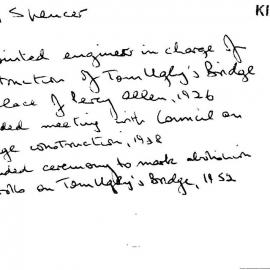 Spencer
KF
ointed engineer in charge of
struction of Tom Ugly's Bridge
place of Percy Allen, 1926
ded meeting with Council on
ge construction, 1938
nded ceremony to mark abolition
tolls on Tom Ugly's Bridge, 1952